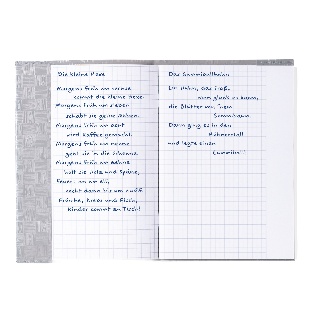 Die kleine Hexe
Morgens früh um sechs
kommt die kleine Hexe.
Morgens früh um sieben
schabt sie gelbe Rüben.
Morgens früh um acht
wird Kaffee gemacht.
Morgens früh um neune
geht sie in die Scheune.
Morgens früh um zehne
holt sie Holz und Späne,
Feuert an um elf,
kocht dann bis um zwölf
Frösche, Krebs und Fisch,
Kinder kommt zu Tisch!
Das Gummiballhuhn
Ein Huhn, das fraß,
man glaubt es kaum,
die Blätter von 'nem
Gummibaum
Dann ging es in den
Hühnerstall
und legte einen
Gummiball